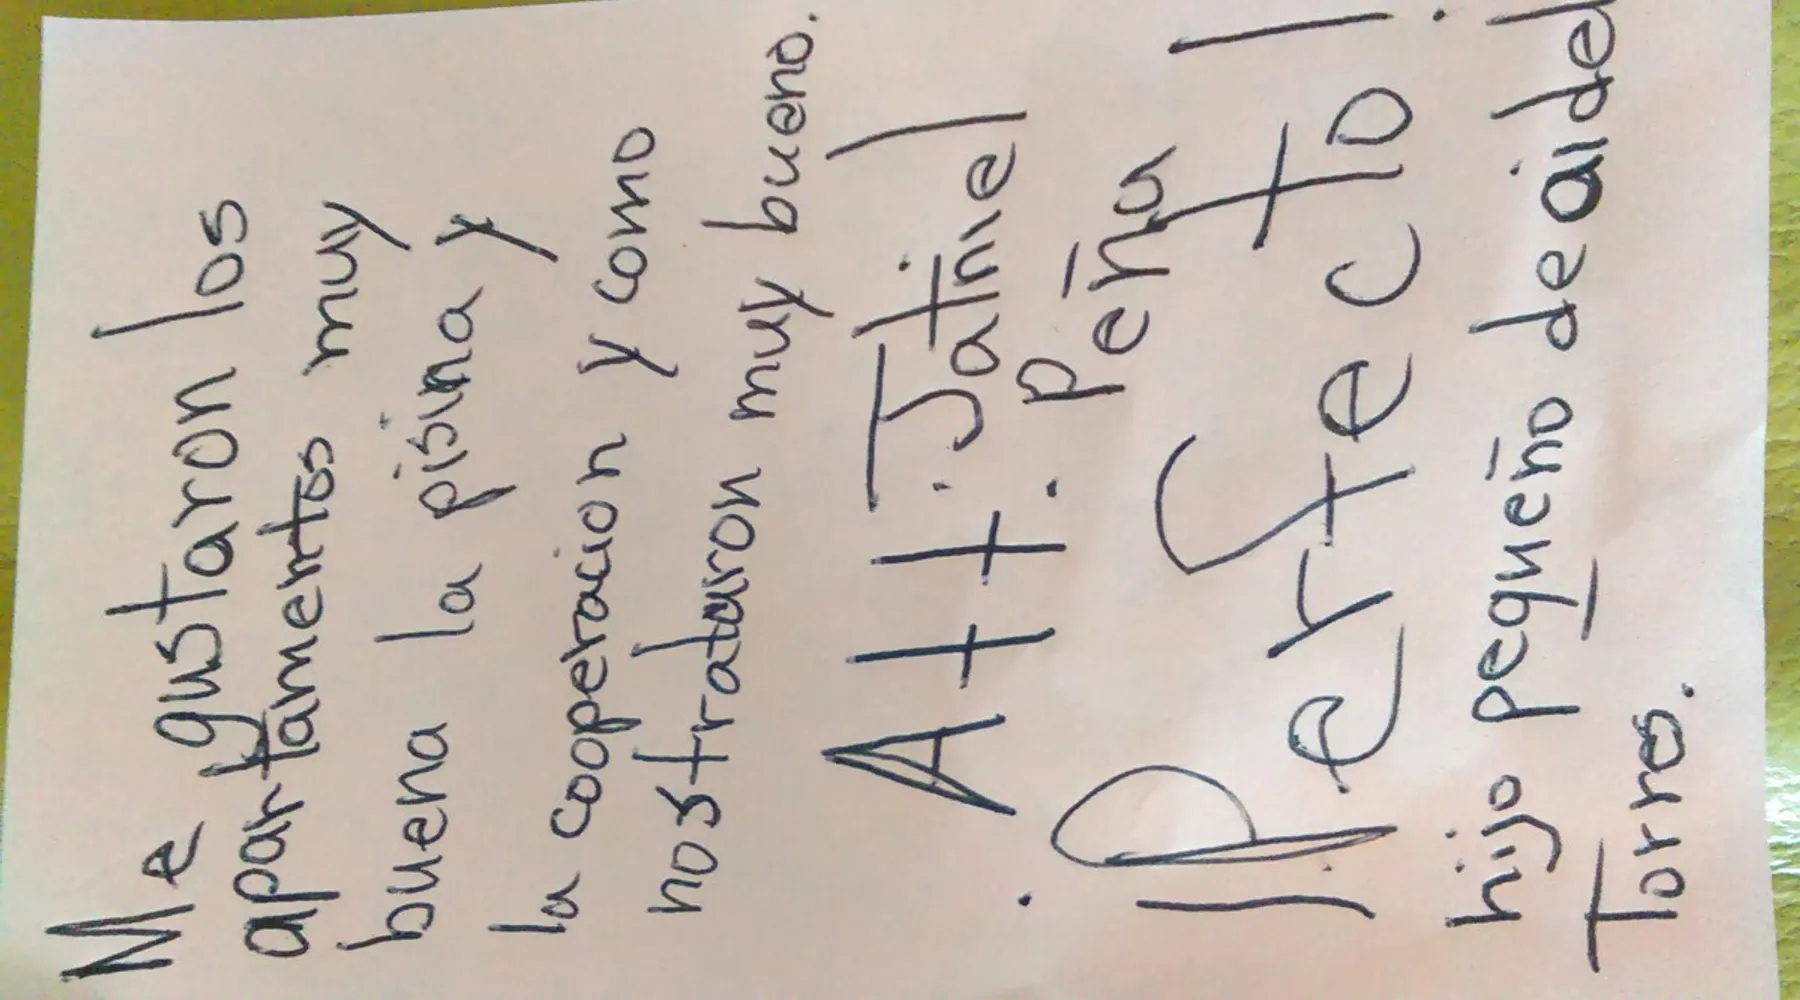 Me gustaron los
apartamentos muy
buena la pisina y
la cooperacion y como
nos trataron muy bueno.
Att: Jatniel
. Peña
¡Perfecto!
hijo pequeño de aidel
Torres.